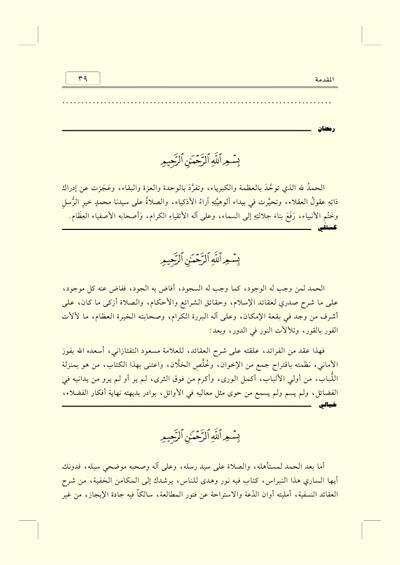 المقدمة
٣٩
رمضان
بِسْمِ اللَّهِ الرَّحْمَٰنِ الرَّحِيمِ
الحمدُ لله الذي توحَّدَ بالعظمة والكبرياء، وتفرَّدَ بالوحدة والعزة والبقاء، وعَجَزت عن إدراك
ذاتِهِ عقولُ العقلاء، وتحيَّرت في بيداء ألوهيَّتِهِ آراءُ الأذكياء، والصلاةُ على سيدنا محمدٍ خيرِ الرُّسلِ
وخَتْمِ الأنبياء، رَفَعَ بناءَ جلالتِهِ إلى السماء، وعلى آله الأتقياءِ الكرام، وَأصحابه الأصفياءِ العِظَام.
كستلي
بِسْمِ اللَّهِ الرَّحْمَٰنِ الرَّحِيمِ
الحمد لمن وجب له الوجود، كما وجب له السجود، أفاض به الجود، ففاض عنه كل موجود،
على ما شرح صدري لعقائد الإسلام، وحقائق الشرائع والأحكام، والصلاة أزكى ما كان، على
أشرف من وجد في بقعة الإمكان، وعلى آله البررة الكرام، وصحابته الخيرة العظام، ما لألأت
الفور بالفور، وتلألأت النور في الدور، وبعد:
فهذا عقد من الفرائد، علقته على شرح العقائد، للعلامة مسعود التفتازاني، أسعده الله بفوز
الأماني، نظمته باقتراح جمع من الإخوان، وخُلَّصِ الخلَّان، واعتنى بهذا الكتاب، من هو بمنزلة
اللُّباب، من أولي الألباب، أكمل الورى، وأكرم من فوق الثرى، لم ير أو لم يرو من يدانيه في
الفضائل، ولم يسم ولم يسمع من حوى مثل معاليه في الأوائل، بوادر بديهته نهاية أفكار الفضلاء،
خيالي
بِسْمِ اللَّهِ الرَّحْمَٰنِ الرَّحِيمِ
أما بعد الحمد لمستأهله، والصلاة على سيد رسله، وعلى آله وصحبه موضحي سبله، فدونك
أيها الساري هذا النبراس، كتاب فيه نور وهدى للناس، يرشدك إلى المكامن الخفية، من شرح
العقائد النسفية، أمليته أوان الدَّعة والاستراحة عن فتور المطالعة، سالكاً فيه جادة الإيجاز، من غير